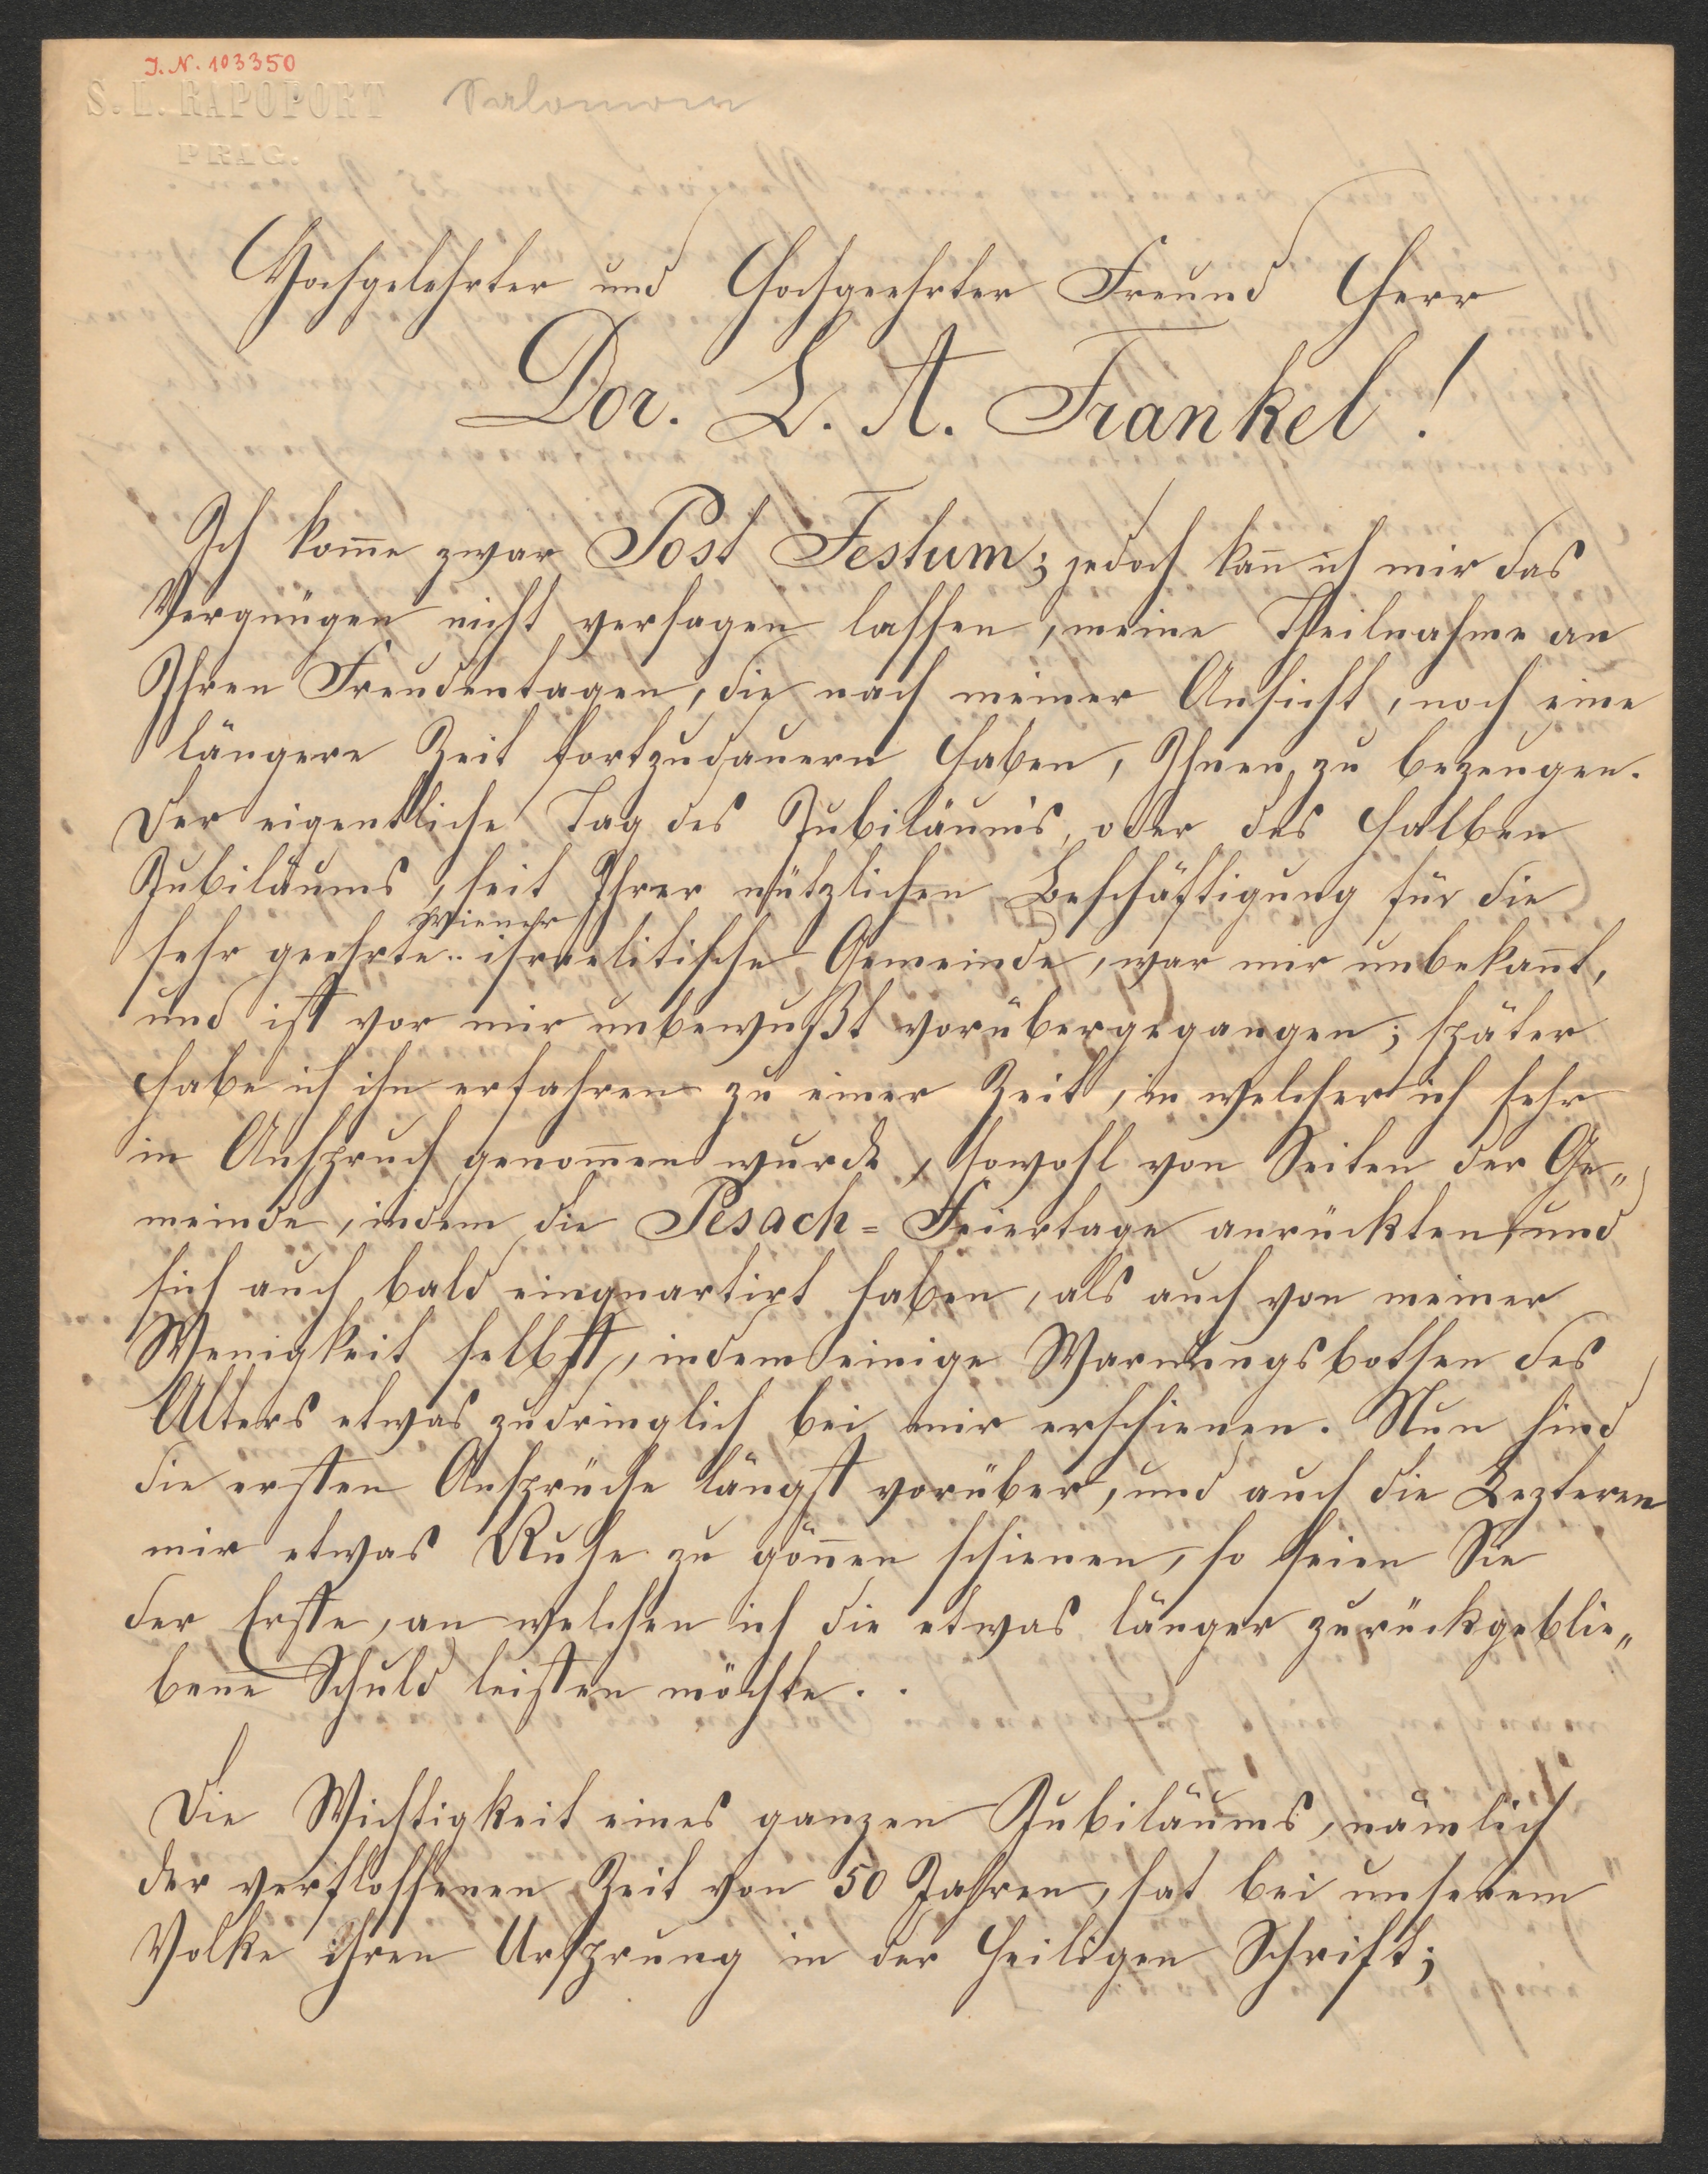 J.N. 103350
S. L. RAPOPORT Salomon
PRAG.
Hochgelehrter und Hochgeehrter Freund Herr
Dor. L. A. Frankel!
Ich kom̄e zwar Post Festum; jedoch kan̄ ich mir das
Vergnügen nicht versagen lassen, meine Theilnahme an
Ihren Freudentagen, die nach meiner Ansicht, noch eine
längere Zeit fortzudauern haben, Ihnen zu bezeugen.
Der eigentliche Tag des Jubiläums, oder des halben
Jubiläums, seit Ihrer nützlichen Beschäftigung für die
Wiener
sehr geehrte israelitische Gemeinde, war mir unbekan̄t,
und ist vor mir unbewußt vorübergegangen; später
habe ich ihn erfahren zu einer Zeit, in welcher ich sehr
in Anspruch genom̄en wurde, sowohl von Seiten der Ge„
meinde, indem die Pesach=Feiertage anrückten und
sich auch bald einquartirt haben, als auch von meiner
Wenigkeit selbst, indem einige Warnungsbothen des
Alters etwas zudringlich bei mir erschienen. Nun sind
die ersten Ansprüche längst vorüber, und auch die Lezteren
mir etwas Ruhe zu gön̄en schienen, so seien Sie
der Erste, an welchen ich die etwas länger zurückgeblie„
bene Schuld leisten möchte..
Die Wichtigkeit eines ganzen Jubiläums, nämlich
der verflossenen Zeit von 50 Jahren, hat bei unserem
Volke ihren Ursprung in der heiligen Schrift;